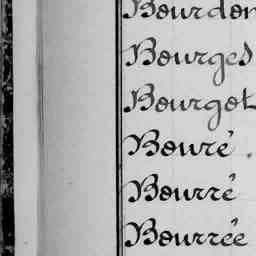 Bourdon
Bourges
Bourgot
Bouré.
Bourré
Bourrée